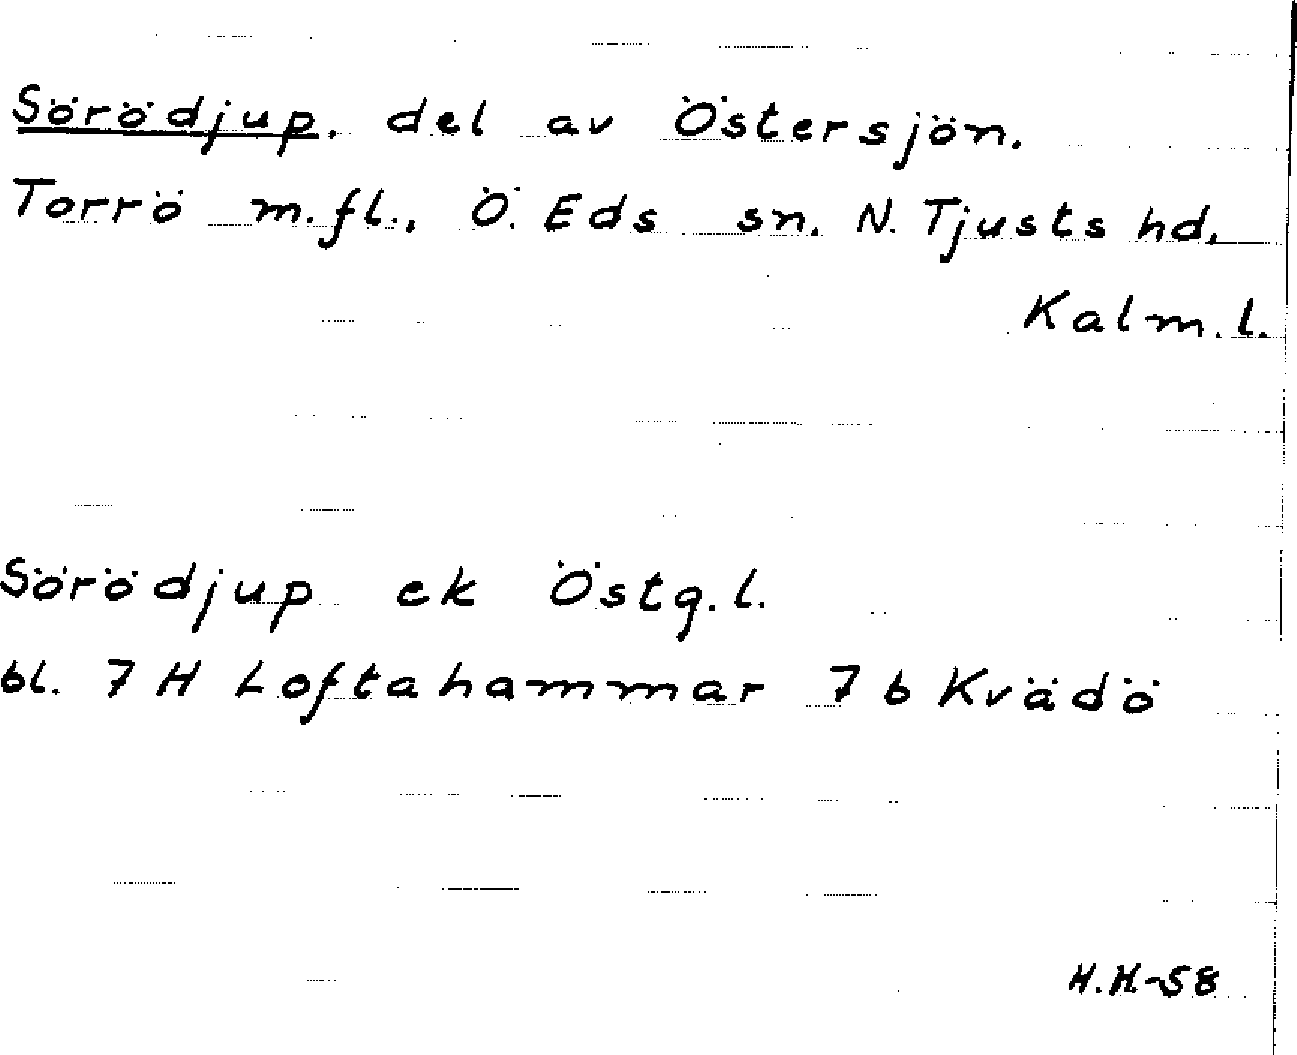 Sörödjup, del av Östersjön.
Torrö m.fl., Ö. Eds sn. N. Tjusts hd,
Kalm. l.
Sörödjup ek Östg. l.
bl. 7 H Loftahammar 7 b Kvädö
H.H-58